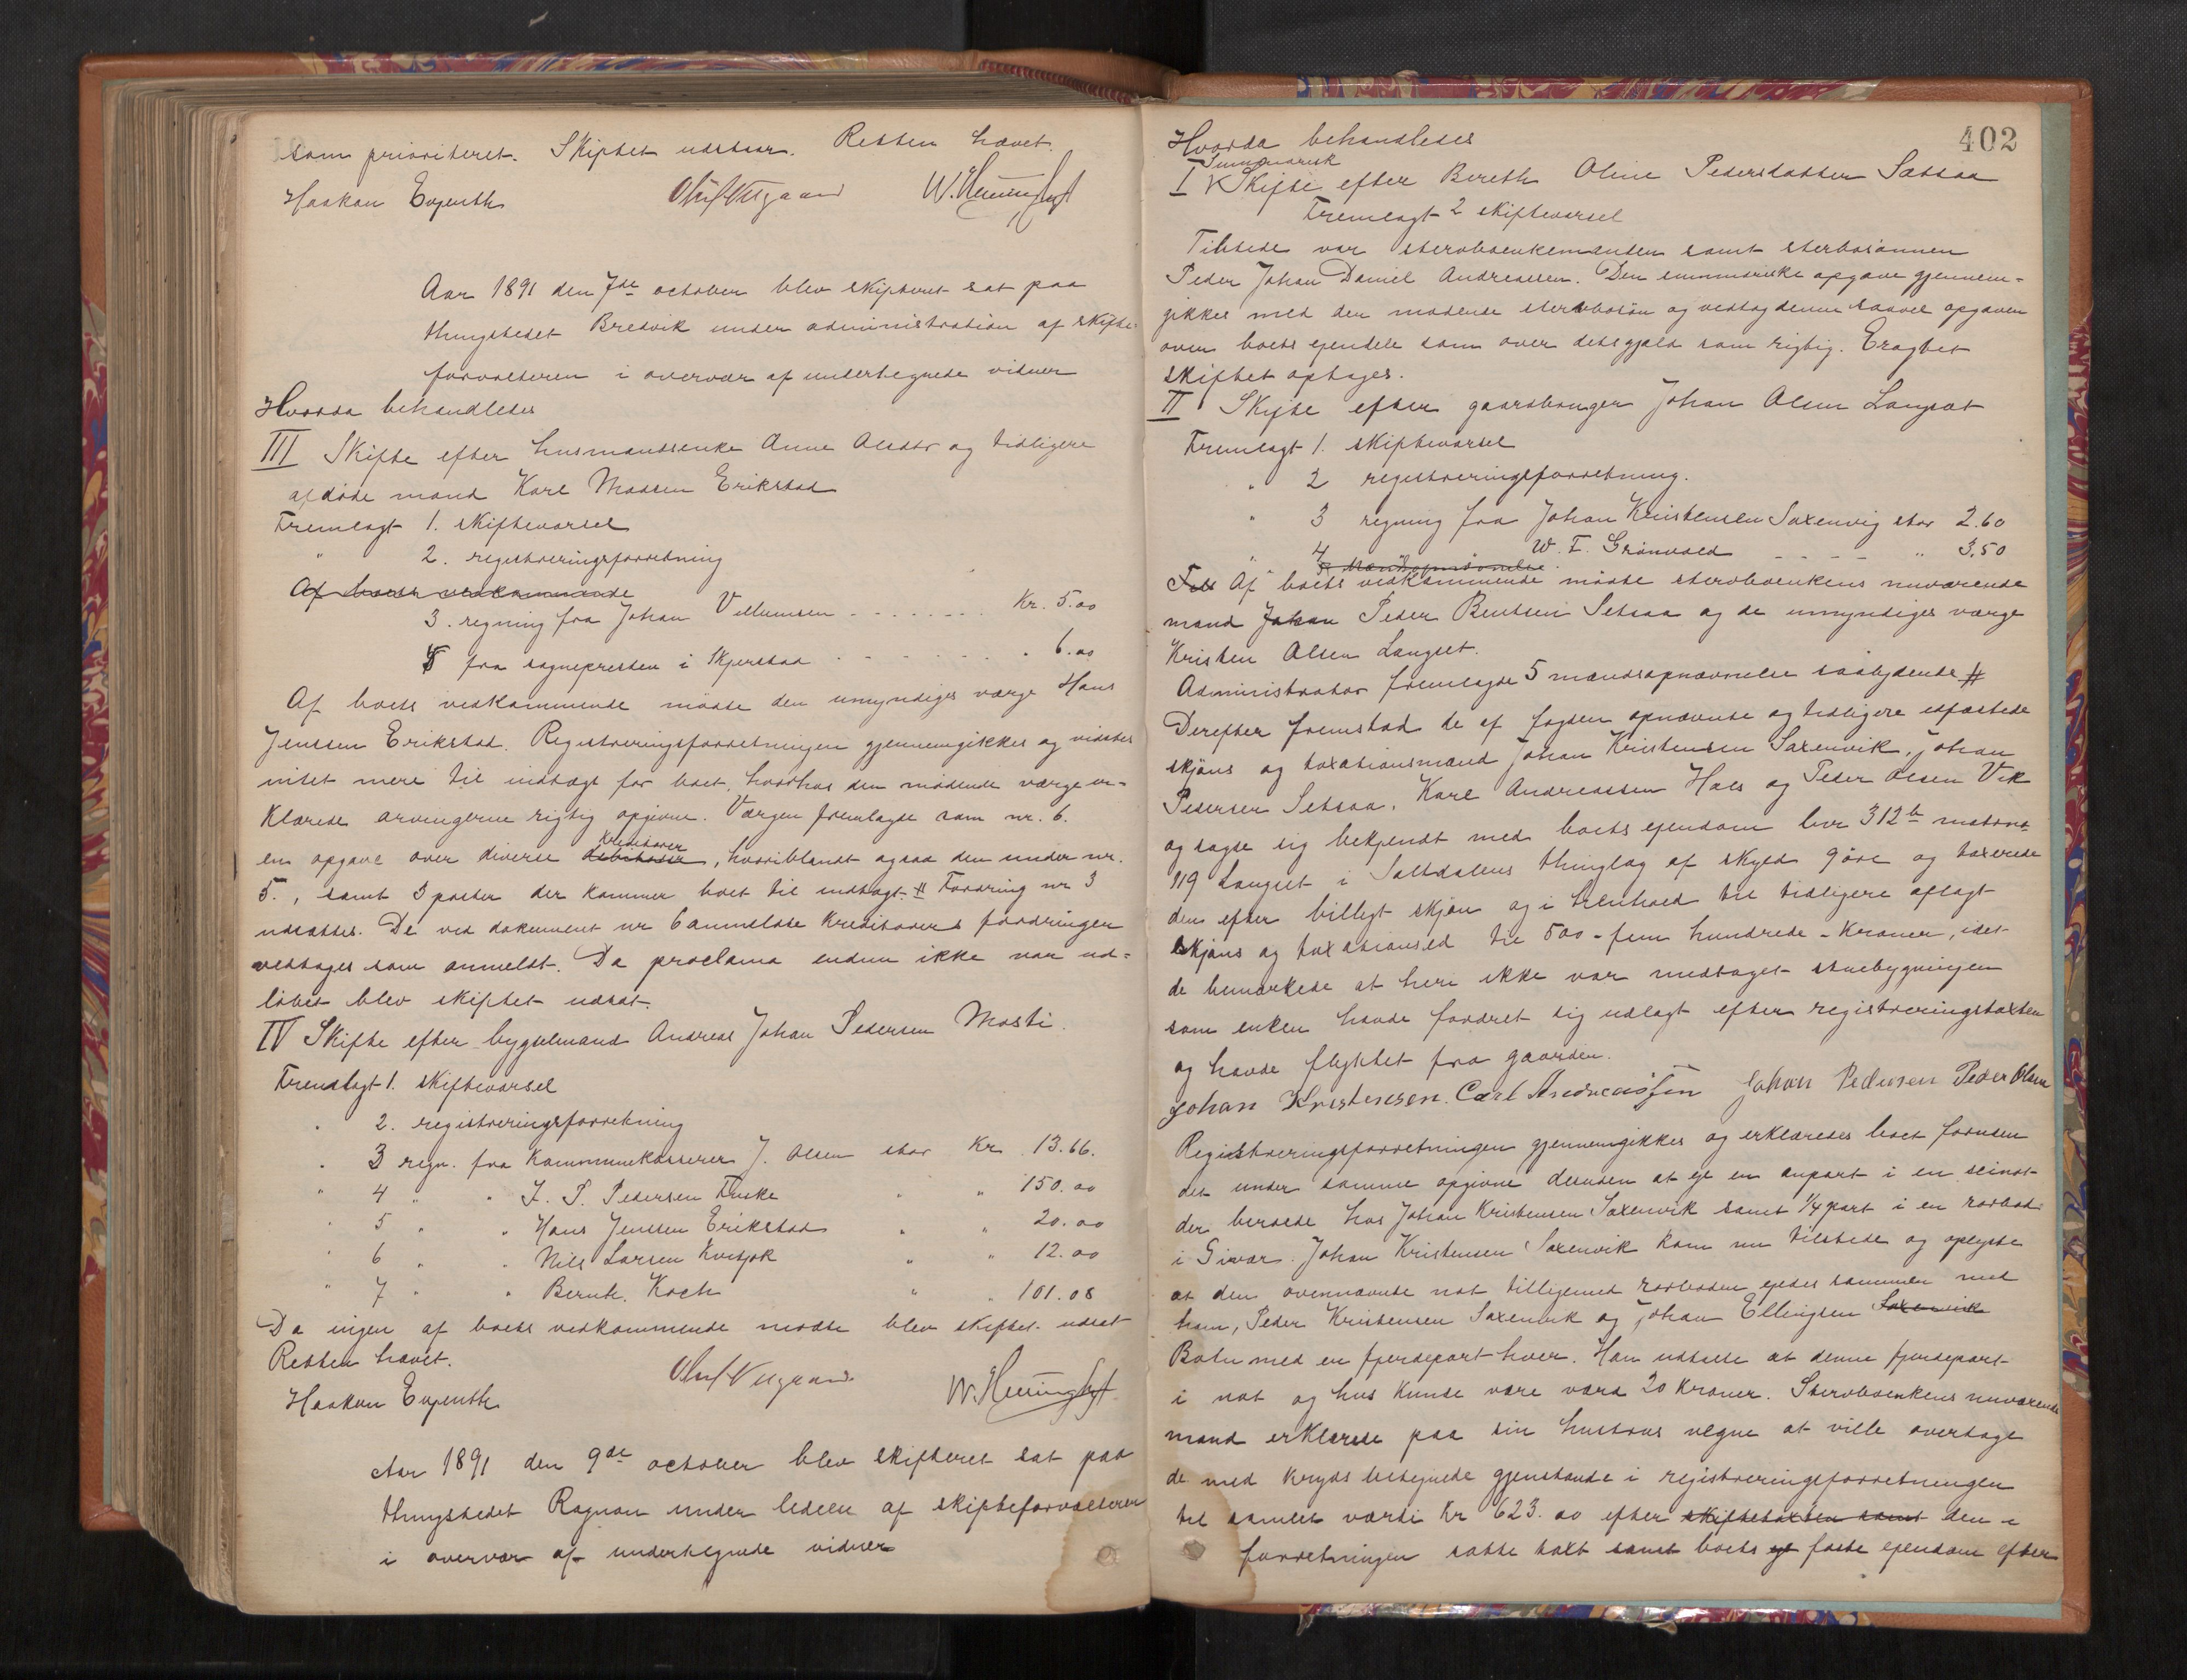 som prioriteret. Skiftet udstaar. Retten hævet.
Haakon Evjenth Oluf Vitgaard W. Henningdyst
Aar 1891 den 7de october blev skifteret sat paa
thingstedet Bredvik under administration af skifte
forvalteren i overvær af undertegnede vidner
Hvorda behandledes
III Skifte efter husmandsenke Anne Olsdtr og tidligere
afdöde mand Karl Madsen Erikstad
Fremlagt 1. skiftevarsel
" 2. registreringsforretning
Af boets vedkommende
3. regning fra Johan Villumsen - - - - - - - Kr. 5.00
5 fra sognepresten i Skjerstad - - - - - - - " 6.00
Af boets vedkommende mödte den umyndiges værge Hans
Jenssen Erikstad. Registreringsforretningen gjennemgikkes og vidstes
intet mere til indtægt for boet, hvorhos den mödende værge er-
klærede arvingerne rigtig opgivne. Værgen fremlagde som nr. 6.
en opgave over diverse debitorer kreditorer, hvoriblandt ogsaa den under nr.
5., samt 3 poster der kommer boet til indtægt. # Fordring nr 3
udsattes. De ved dokument nr 6 anmeldte kreditorers fordringer
vedtages som anmeldt. Da proclama endnu ikke var ud=
löbet blev skiftet udsat.
IV Skifte efter bygselmand Andreas Johan Pedersen Mosti.
Fremlagt 1. skiftevarsel
" 2. registreringsforretning
" 3 regn. fra kommunekasserer J. Olsen stor Kr 13.66.
" 4 " " J. P. Pedersen Fuske " " 150.00
" 5 " " Hans Jenssen Erikstad " " 20.00
" 6 " " Nils Larsen Kvitjok " " 12.00
" 7 " " Bernh. Koch " " 101.08
Da ingen af boets vedkommende mödte blev skiftet udsat
Retten hævet.
Haakon Evjenth Oluf Vitgaard W. Henningdyst
Aar 1891 den 9de october blev skifteret sat paa
thingstedet Rognan under ledelse af skifteforvalteren
i overvær af undertegnede vidner
402
Hvorda behandledes
Summarisk
I Skifte efter Bereth Oline Pedersdatter Sætsaa
Fremlagt 2 skiftevarsel
Tilstede var sterboenkemanden samt sterbosönnen
Peder Johan Daniel Andreassen. Den summariske opgave gjennem-
gikkes med den mödende sterbosön og vedtog denne saavel opgaven
over boets eiendele som over dets gjæld som rigtig. Eragtet
skiftet optages.
II Skifte efter gaardbruger Johan Olsen Langsæt
Fremlagt 1. skiftevarsel
" 2 registreringsforretning.
" 3 regning fra Johan Kristensen Saxenvig stor 2.60
" 4 W. F. Grönvold - - - - " 3.50
5 Mandsopnævnelse.
Af boets vedkommende mödte sterboenkens nuværende
mand Johan Peder Bentsen Setsaa og de umyndiges værge
Kristen Olsen Langset.
Administrator fremlagde 5 mandsopnævnelse saalydende #
Derefter fremstod de af fogden opnævnte og tidligere edfæstede
skjöns og taxationsmænd Johan Kristensen Saxenvik, Johan
Pedersen Setsaa, Karl Andreassen Hals og Peder Olsen Vik
og sagde sig bekjendt med boets eiendom lnr 312b matnr
119 Langset i Saltdalens thinglag af skyld 9 öre og taxerede
den efter billigt skjön og i henhold til tidligere aflagt
skjöns og taxationsed til 500 - fem hundrede - kroner, idet
de bemærkede at heri ikke var medtaget stuebygningen
som enken havde fordret sig udlagt efter registreringstaxten
og havde flyttet fra gaarden.
Johan Kristensen. Carl Andreassen Johan Pedersen Peder Olsen
Registreringsforretningen gjennemgikkes og erklæredes boet foruden
det under samme opgivne desuden at eje en anpart i en seinot
der beroede hos Johan Kristensen Saxenvik samt 1/4 part i en rorbod
i Givær. Johan Kristensen Saxenvik kom nu tilstede og oplyste
at den ovennævnte not tilligemed rorboden ejedes sammen med
ham, Peder Kristensen Saxenvik og Johan Ellingsen Saxenvik
Botn med en fjerdepart hver. Han udtalte at denne fjerdepart
i not og hus kunde være værd 20 kroner. Sterboenkens nuværende
mand erklærede paa sin hustrus vegne at ville overtage
de med kryds betegnede gjenstande i registreringsforretningen
til samlet værdi Kr 623.00 efter skiftetaxten samt den i
forretningen satte taxt samt boets ej faste ejendom efter